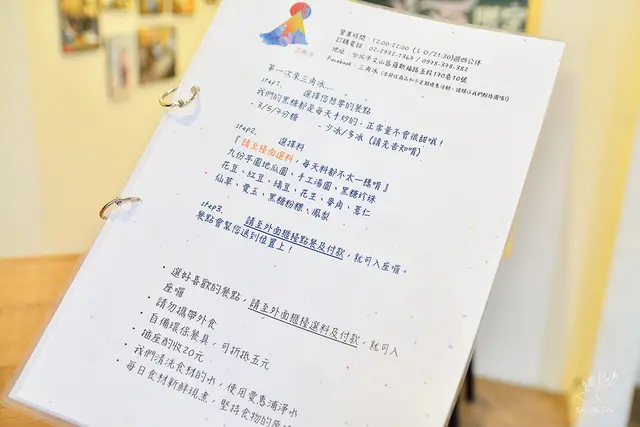 營業時間：12:00-22:00 (L O/21:30)週四公休
訂購電話：02-2932-1969 / 0938-398-382
地址：台北市文山區羅斯福路五段190巷10號
Facebook：三角冰
三角冰
第一次來三角冰...
step1. 選擇您想要的餐點
我們的黑糖都是每天手炒的，正常量不會很甜哦！
- 3/5/7分糖 - 少冰/多冰 (請先告知唷)
step2. 選擇料
『請至檯面選料，每天料都不太一樣唷』
九份芋圓地瓜圓、手工湯圓、黑糖珍珠
花豆、紅豆、綠豆、花生、麥角、薏仁
仙草、愛玉、黑糖粉粿、鳳梨
step3. 請至外面櫃檯點餐及付款，就可入座囉。
餐點會幫您送到位置上！
• 選好喜歡的餐點，請至外面櫃檯選料及付款，就可入
座囉
• 請勿攜帶外食
• 自備環保餐具，可折抵五元
• 插座酌收20元
• 我們清洗食材的水，使用愛惠浦淨水
• 每日食材新鮮現煮，堅持食物的原